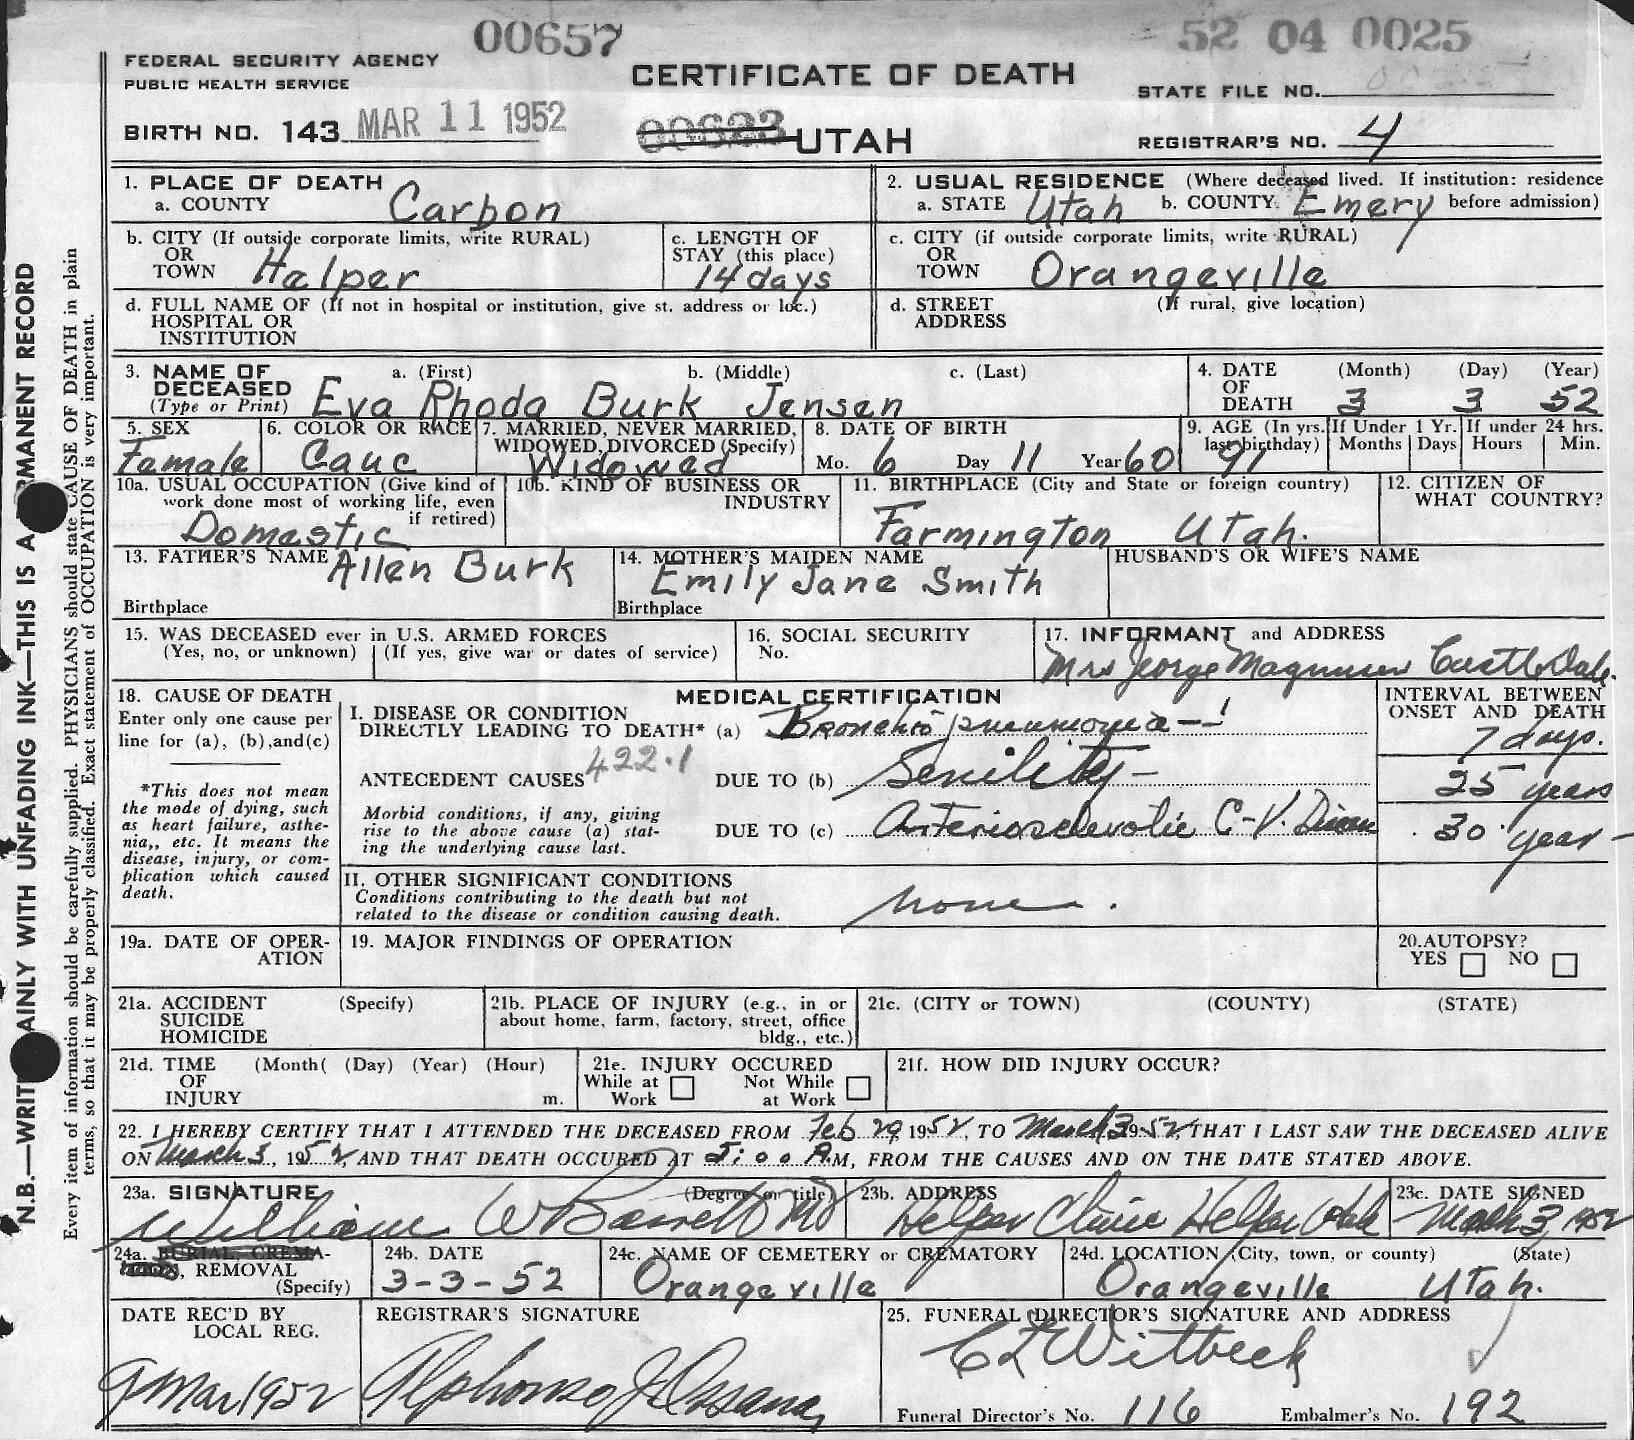 00657
52 04 0025
FEDERAL SECURITY AGENCY
PUBLIC HEALTH SERVICE
CERTIFICATE OF DEATH
STATE FILE NO.
BIRTH NO. 143 MAR 11 1952
00623 UTAH
REGISTRAR'S NO. 4
N.B.—WRIT AINLY WITH UNFADING INK—THIS IS A RMANENT RECORD
Every item of information should be carefully supplied. PHYSICIANS should state CAUSE OF DEATH in plain
terms, so that it may be properly classified. Exact statement of OCCUPATION is very important.
1. PLACE OF DEATH
a. COUNTY Carbon
2. USUAL RESIDENCE (Where deceased lived. If institution: residence
a. STATE Utah b. COUNTY Emery before admission)
b. CITY (If outside corporate limits, write RURAL)
OR
TOWN Helper
c. LENGTH OF
STAY (this place)
14 days
c. CITY (if outside corporate limits, write RURAL)
OR
TOWN Orangeville
d. FULL NAME OF (If not in hospital or institution, give st. address or loc.)
HOSPITAL OR
INSTITUTION
d. STREET (If rural, give location)
ADDRESS
3. NAME OF a. (First) b. (Middle) c. (Last)
DECEASED
(Type or Print) Eva Rhoda Burk Jensen
4. DATE (Month) (Day) (Year)
OF
DEATH 3 3 52
5. SEX
Female
6. COLOR OR RACE
Cauc
7. MARRIED, NEVER MARRIED,
WIDOWED, DIVORCED (Specify)
Widowed
8. DATE OF BIRTH
Mo. 6 Day 11 Year 60
9. AGE (In yrs.
last birthday)
91
If Under 1 Yr.
Months Days
If under 24 hrs.
Hours Min.
10a. USUAL OCCUPATION (Give kind of
work done most of working life, even
if retired)
Domestic
10b. KIND OF BUSINESS OR
INDUSTRY
11. BIRTHPLACE (City and State or foreign country)
Farmington Utah.
12. CITIZEN OF
WHAT COUNTRY?
13. FATHER'S NAME Allen Burk
Birthplace
14. MOTHER'S MAIDEN NAME
Emily Jane Smith
Birthplace
HUSBAND'S OR WIFE'S NAME
15. WAS DECEASED ever in U.S. ARMED FORCES
(Yes, no, or unknown) (If yes, give war or dates of service)
16. SOCIAL SECURITY
No.
17. INFORMANT and ADDRESS
Mrs George Magnuson Castle Dale.
18. CAUSE OF DEATH
Enter only one cause per
line for (a), (b), and (c)
*This does not mean
the mode of dying, such
as heart failure, asthe-
nia,, etc. It means the
disease, injury, or com-
plication which caused
death.
MEDICAL CERTIFICATION
I. DISEASE OR CONDITION
DIRECTLY LEADING TO DEATH* (a) Broncho pneumonia
ANTECEDENT CAUSES 422.1 DUE TO (b) Senility
Morbid conditions, if any, giving
rise to the above cause (a) stat-
ing the underlying cause last.
DUE TO (c) Arteriosclerotic C-V. Disease
INTERVAL BETWEEN
ONSET AND DEATH
7 days.
25 years
30 year
II. OTHER SIGNIFICANT CONDITIONS
Conditions contributing to the death but not
related to the disease or condition causing death.
none.
19a. DATE OF OPER-
ATION
19. MAJOR FINDINGS OF OPERATION
20. AUTOPSY?
YES NO
21a. ACCIDENT (Specify)
SUICIDE
HOMICIDE
21b. PLACE OF INJURY (e.g., in or
about home, farm, factory, street, office
bldg., etc.)
21c. (CITY or TOWN) (COUNTY) (STATE)
21d. TIME (Month( (Day) (Year) (Hour)
OF
INJURY m.
21e. INJURY OCCURED
While at Work Not While at Work
21f. HOW DID INJURY OCCUR?
22. I HEREBY CERTIFY THAT I ATTENDED THE DECEASED FROM Feb 29, 1952, TO March 3 1952, THAT I LAST SAW THE DECEASED ALIVE
ON March 3, 1952, AND THAT DEATH OCCURED AT 5:00 A.M, FROM THE CAUSES AND ON THE DATE STATED ABOVE.
23a. SIGNATURE (Degree or title)
William W Bassett MD
23b. ADDRESS
Helper Clinic Helper Utah
23c. DATE SIGNED
March 3 1952
24a. BURIAL, CREMA-
, REMOVAL
(Specify)
24b. DATE
3-3-52
24c. NAME OF CEMETERY or CREMATORY
Orangeville
24d. LOCATION (City, town, or county) (State)
Orangeville Utah.
DATE REC'D BY
LOCAL REG.
9 Mar 1952
REGISTRAR'S SIGNATURE
Alphonso J Ossana
25. FUNERAL DIRECTOR'S SIGNATURE AND ADDRESS
CL Witbeck
Funeral Director's No. 116 Embalmer's No. 192